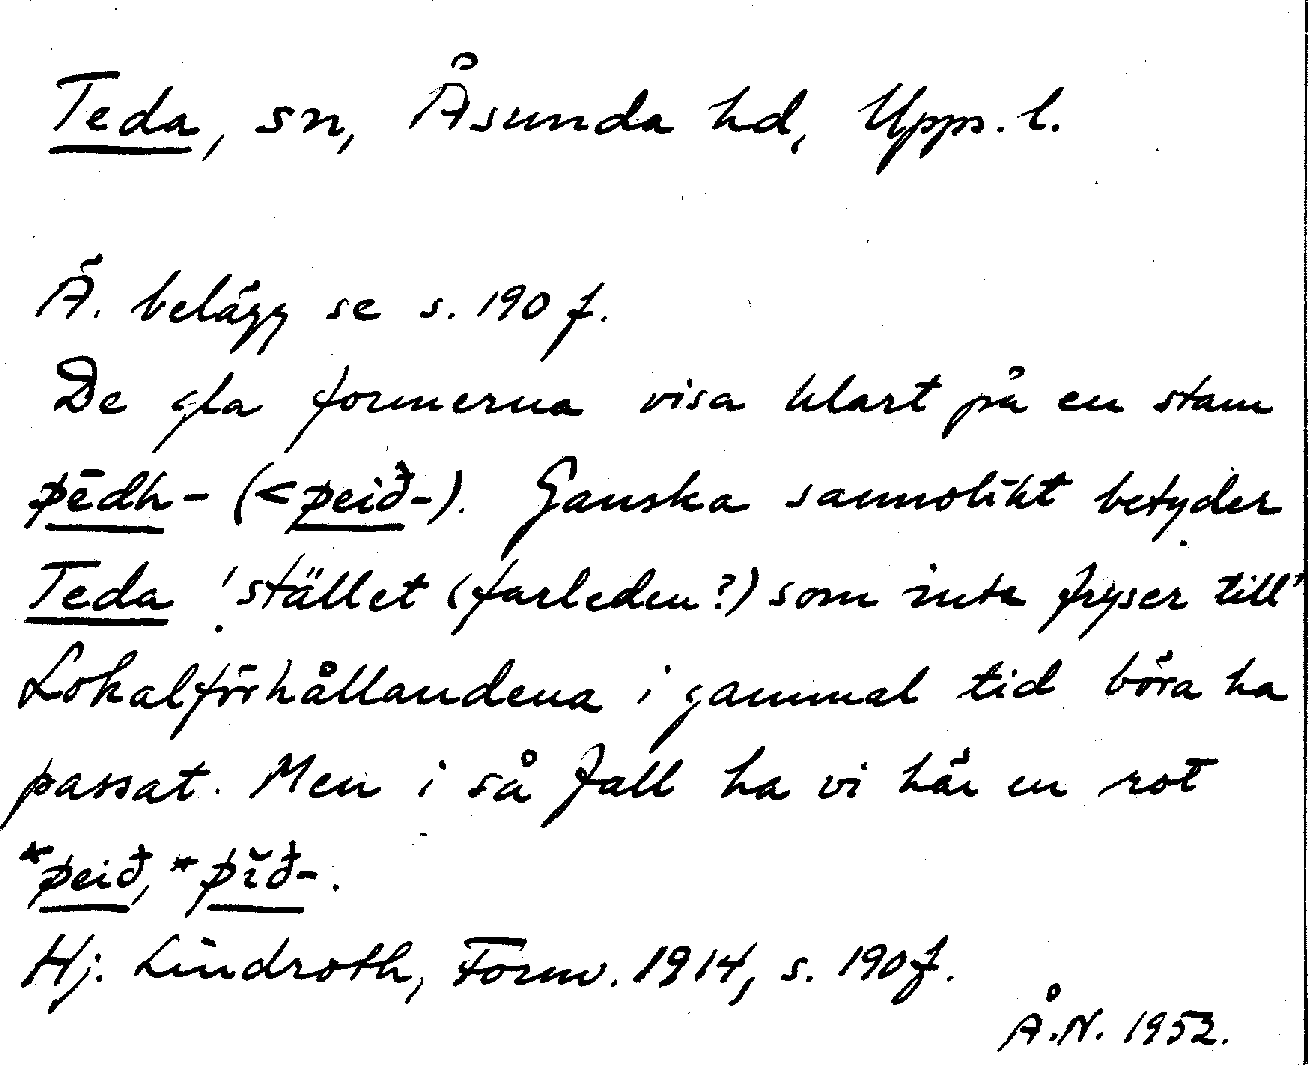 Teda, sn, Åsunda hd, Upps. l.
Ä. belägg se s. 190 f.
De gla formerna visa klart på en stam
þēdh- (< þeið-). Ganska sannolikt betyder
Teda 'stället (farleden?) som inte fryser till'
Lokalförhållandena i gammal tid böra ha
passat. Men i så fall ha vi här en rot
*þeið, *þĭð-.
Hj. Lindroth, Fornv. 1914, s. 190 f.
Å.N. 1952.